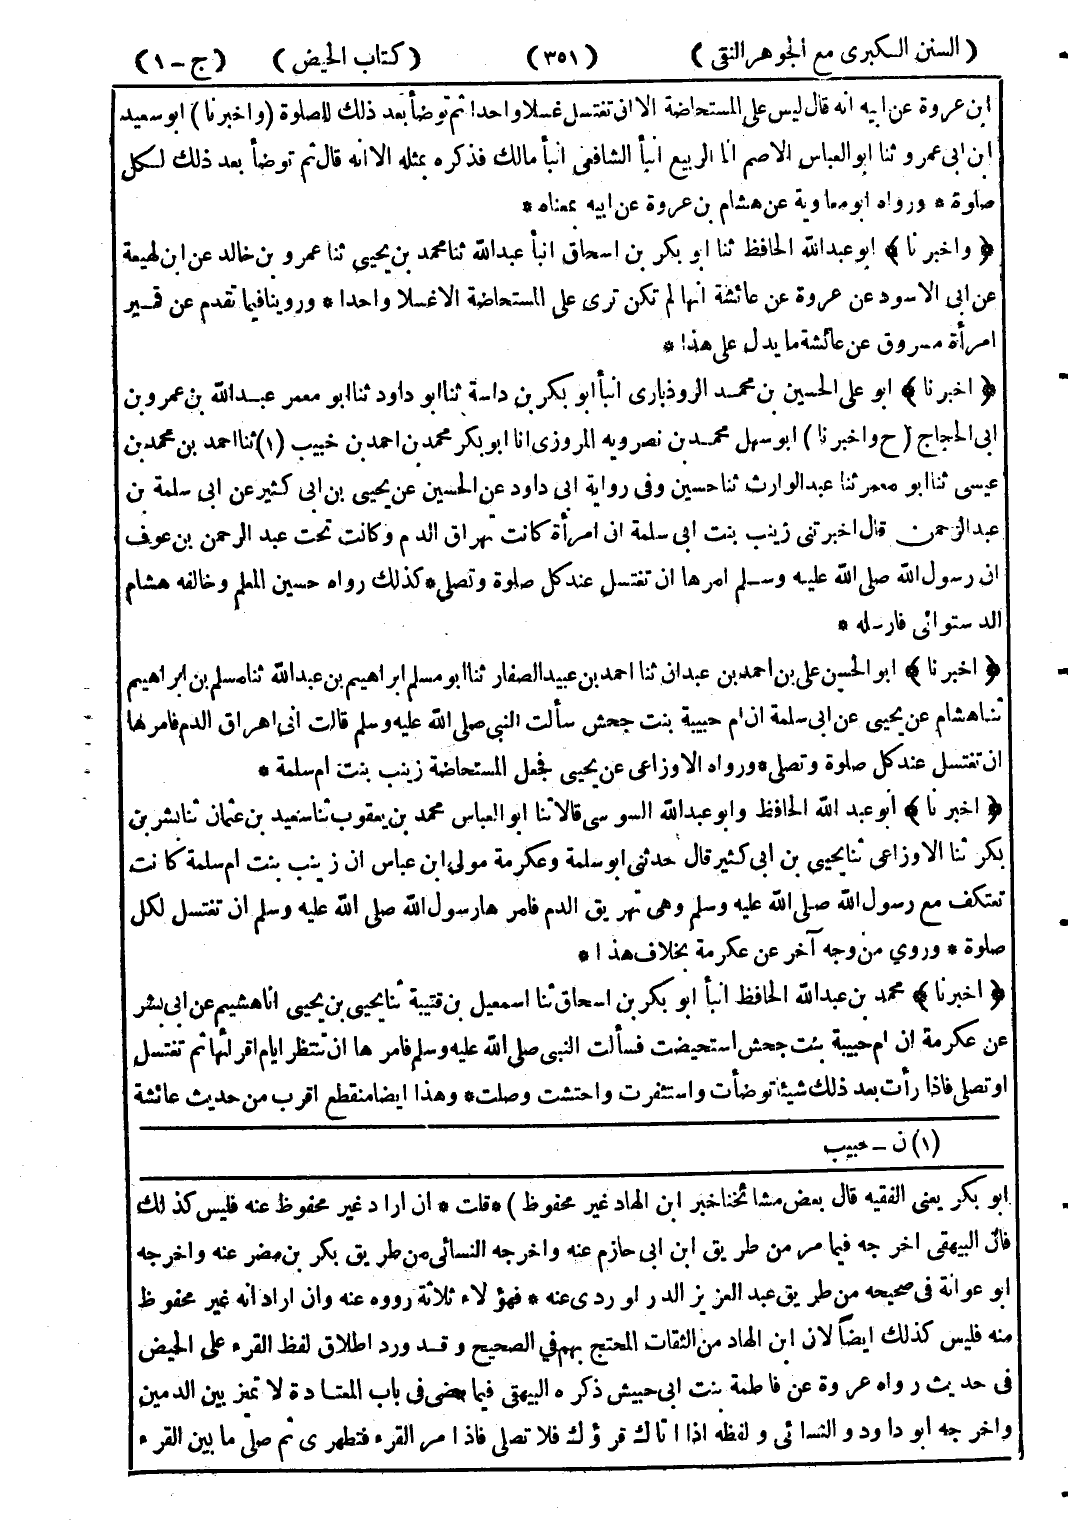 ( السنن الكبرى مع الجوهر النقى ) ( ٣٥١ ) ( كتاب الحيض ) ( ج ـ ١ )
ابن عروة عن ابيه انه قال ليس على المستحاضة الا ان تغتسل غسلا واحدا ثم توضأ بعد ذلك للصلوة ( واخبرنا ) ابو سعيد
ابن ابى عمرو ثنا ابو العباس الاصم انا الربيع انبأ الشافعى انبأ مالك فذكره بمثله الا انه قال ثم توضأ بعد ذلك لكل
صلوة * ورواه ابو معاوية عن هشام بن عروة عن ابيه بمعناه *
﴿ واخبرنا ﴾ ابو عبد الله الحافظ ثنا ابو بكر بن اسحاق انبأ عبد الله ثنا محمد بن يحيى ثنا عمرو بن خالد عن ابن لهيعة
عن ابى الاسود عن عروة عن عائشة انها لم تكن ترى على المستحاضة الا غسلا واحدا * وروينا فيما تقدم عن قمير
امرأة مسروق عن عائشة ما يدل على هذا *
﴿ اخبرنا ﴾ ابو على الحسين بن محمد الروذبارى انبأ ابو بكر بن داسة ثنا ابو داود ثنا ابو معمر عبد الله بن عمرو بن
ابى الحجاج ( ح واخبرنا ) ابو سهل محمد بن نصرويه المروزى انا ابو بكر محمد بن احمد بن خبيب (١) ثنا احمد بن محمد بن
عيسى ثنا ابو معمر ثنا عبد الوارث ثنا حسين وفى رواية ابى داود عن الحسين عن يحيى بن ابى كثير عن ابى سلمة بن
عبد الرحمن قال اخبرتنى زينب بنت ابى سلمة ان امرأة كانت تهراق الدم وكانت تحت عبد الرحمن بن عوف
ان رسول الله صلى الله عليه وسلم امرها ان تغتسل عند كل صلوة وتصلى * كذلك رواه حسين المعلم وخالفه هشام
الدستوائى فارسله *
﴿ اخبرنا ﴾ ابو الحسين على بن احمد بن عبدان ثنا احمد بن عبيد الصفار ثنا ابو مسلم ابراهيم بن عبد الله ثنا مسلم بن ابراهيم
ثنا هشام عن يحيى عن ابى سلمة ان ام حبيبة بنت جحش سألت النبى صلى الله عليه وسلم قالت انى اهراق الدم فامرها
ان تغتسل عند كل صلوة وتصلى * ورواه الاوزاعى عن يحيى فجعل المستحاضة زينب بنت ام سلمة *
﴿ اخبرنا ﴾ ابو عبد الله الحافظ وابو عبد الله السوسى قالا ثنا ابو العباس محمد بن يعقوب ثنا سعيد بن عثمان ثنا بشر بن
بكر ثنا الاوزاعى ثنا يحيى بن ابى كثير قال حدثنى ابو سلمة وعكرمة مولى ابن عباس ان زينب بنت ام سلمة كانت
تعتكف مع رسول الله صلى الله عليه وسلم وهى تهريق الدم فامرها رسول الله صلى الله عليه وسلم ان تغتسل لكل
صلوة * وروي من وجه آخر عن عكرمة بخلاف هذا *
﴿ اخبرنا ﴾ محمد بن عبد الله الحافظ انبأ ابو بكر بن اسحاق ثنا اسمعيل بن قتيبة ثنا يحيى بن يحيى انا هشيم عن ابى بشر
عن عكرمة ان ام حبيبة بنت جحش استحيضت فسألت النبى صلى الله عليه وسلم فامرها ان تنتظر ايام اقرائها ثم تغتسل
او تصلى فاذا رأت بعد ذلك شيئا توضأت واستثفرت واحتشت وصلت * وهذا ايضا منقطع اقرب من حديث عائشة
(١) ن ـ حبيب
ابو بكر يعنى الفقيه قال بعض مشائخنا خبر ابن الهاد غير محفوظ ) * قلت * ان اراد غير محفوظ عنه فليس كذلك
فان البيهقى اخرجه فيما مر من طريق ابن ابى حازم عنه واخرجه النسائى من طريق بكر بن مضر عنه واخرجه
ابو عوانة فى صحيحه من طريق عبد العزيز الدراوردى عنه * فهؤلاء ثلاثة رووه عنه وان اراد انه غير محفوظ
منه فليس كذلك ايضاً لان ابن الهاد من الثقات المحتج بهم في الصحيح وقد ورد اطلاق لفظ القرء على الحيض
فى حديث رواه عروة عن فاطمة بنت ابى حبيش ذكره البيهقى فيما مضى فى باب المعتادة لا تميز بين الدمين
واخرجه ابو داود والنسائى ولفظه اذا اتاك قرؤك فلا تصلى فاذا مر القرء فتطهرى ثم صلى ما بين القرء